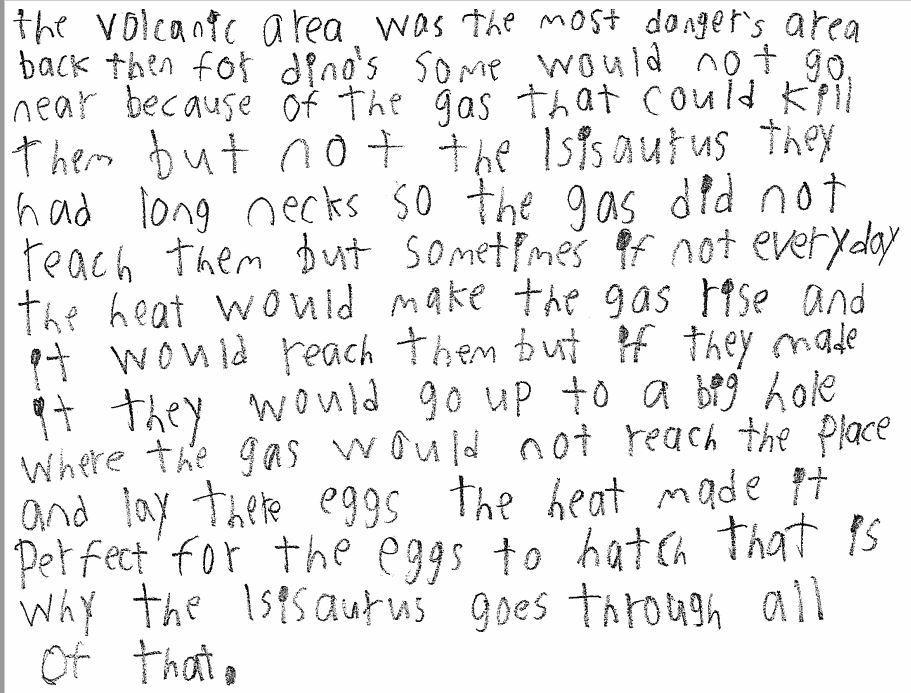 the volcanic area was the most danger's area
back then for dino's some would not go
near because of the gas that could kill
them but not the Isisaurus they
had long necks so the gas did not
reach them but sometimes if not everyday
the heat would make the gas rise and
it would reach them but if they made
it they would go up to a big hole
where the gas would not reach the place
and lay there eggs the heat made it
perfect for the eggs to hatch that is
why the Isisaurus goes through all
of that.